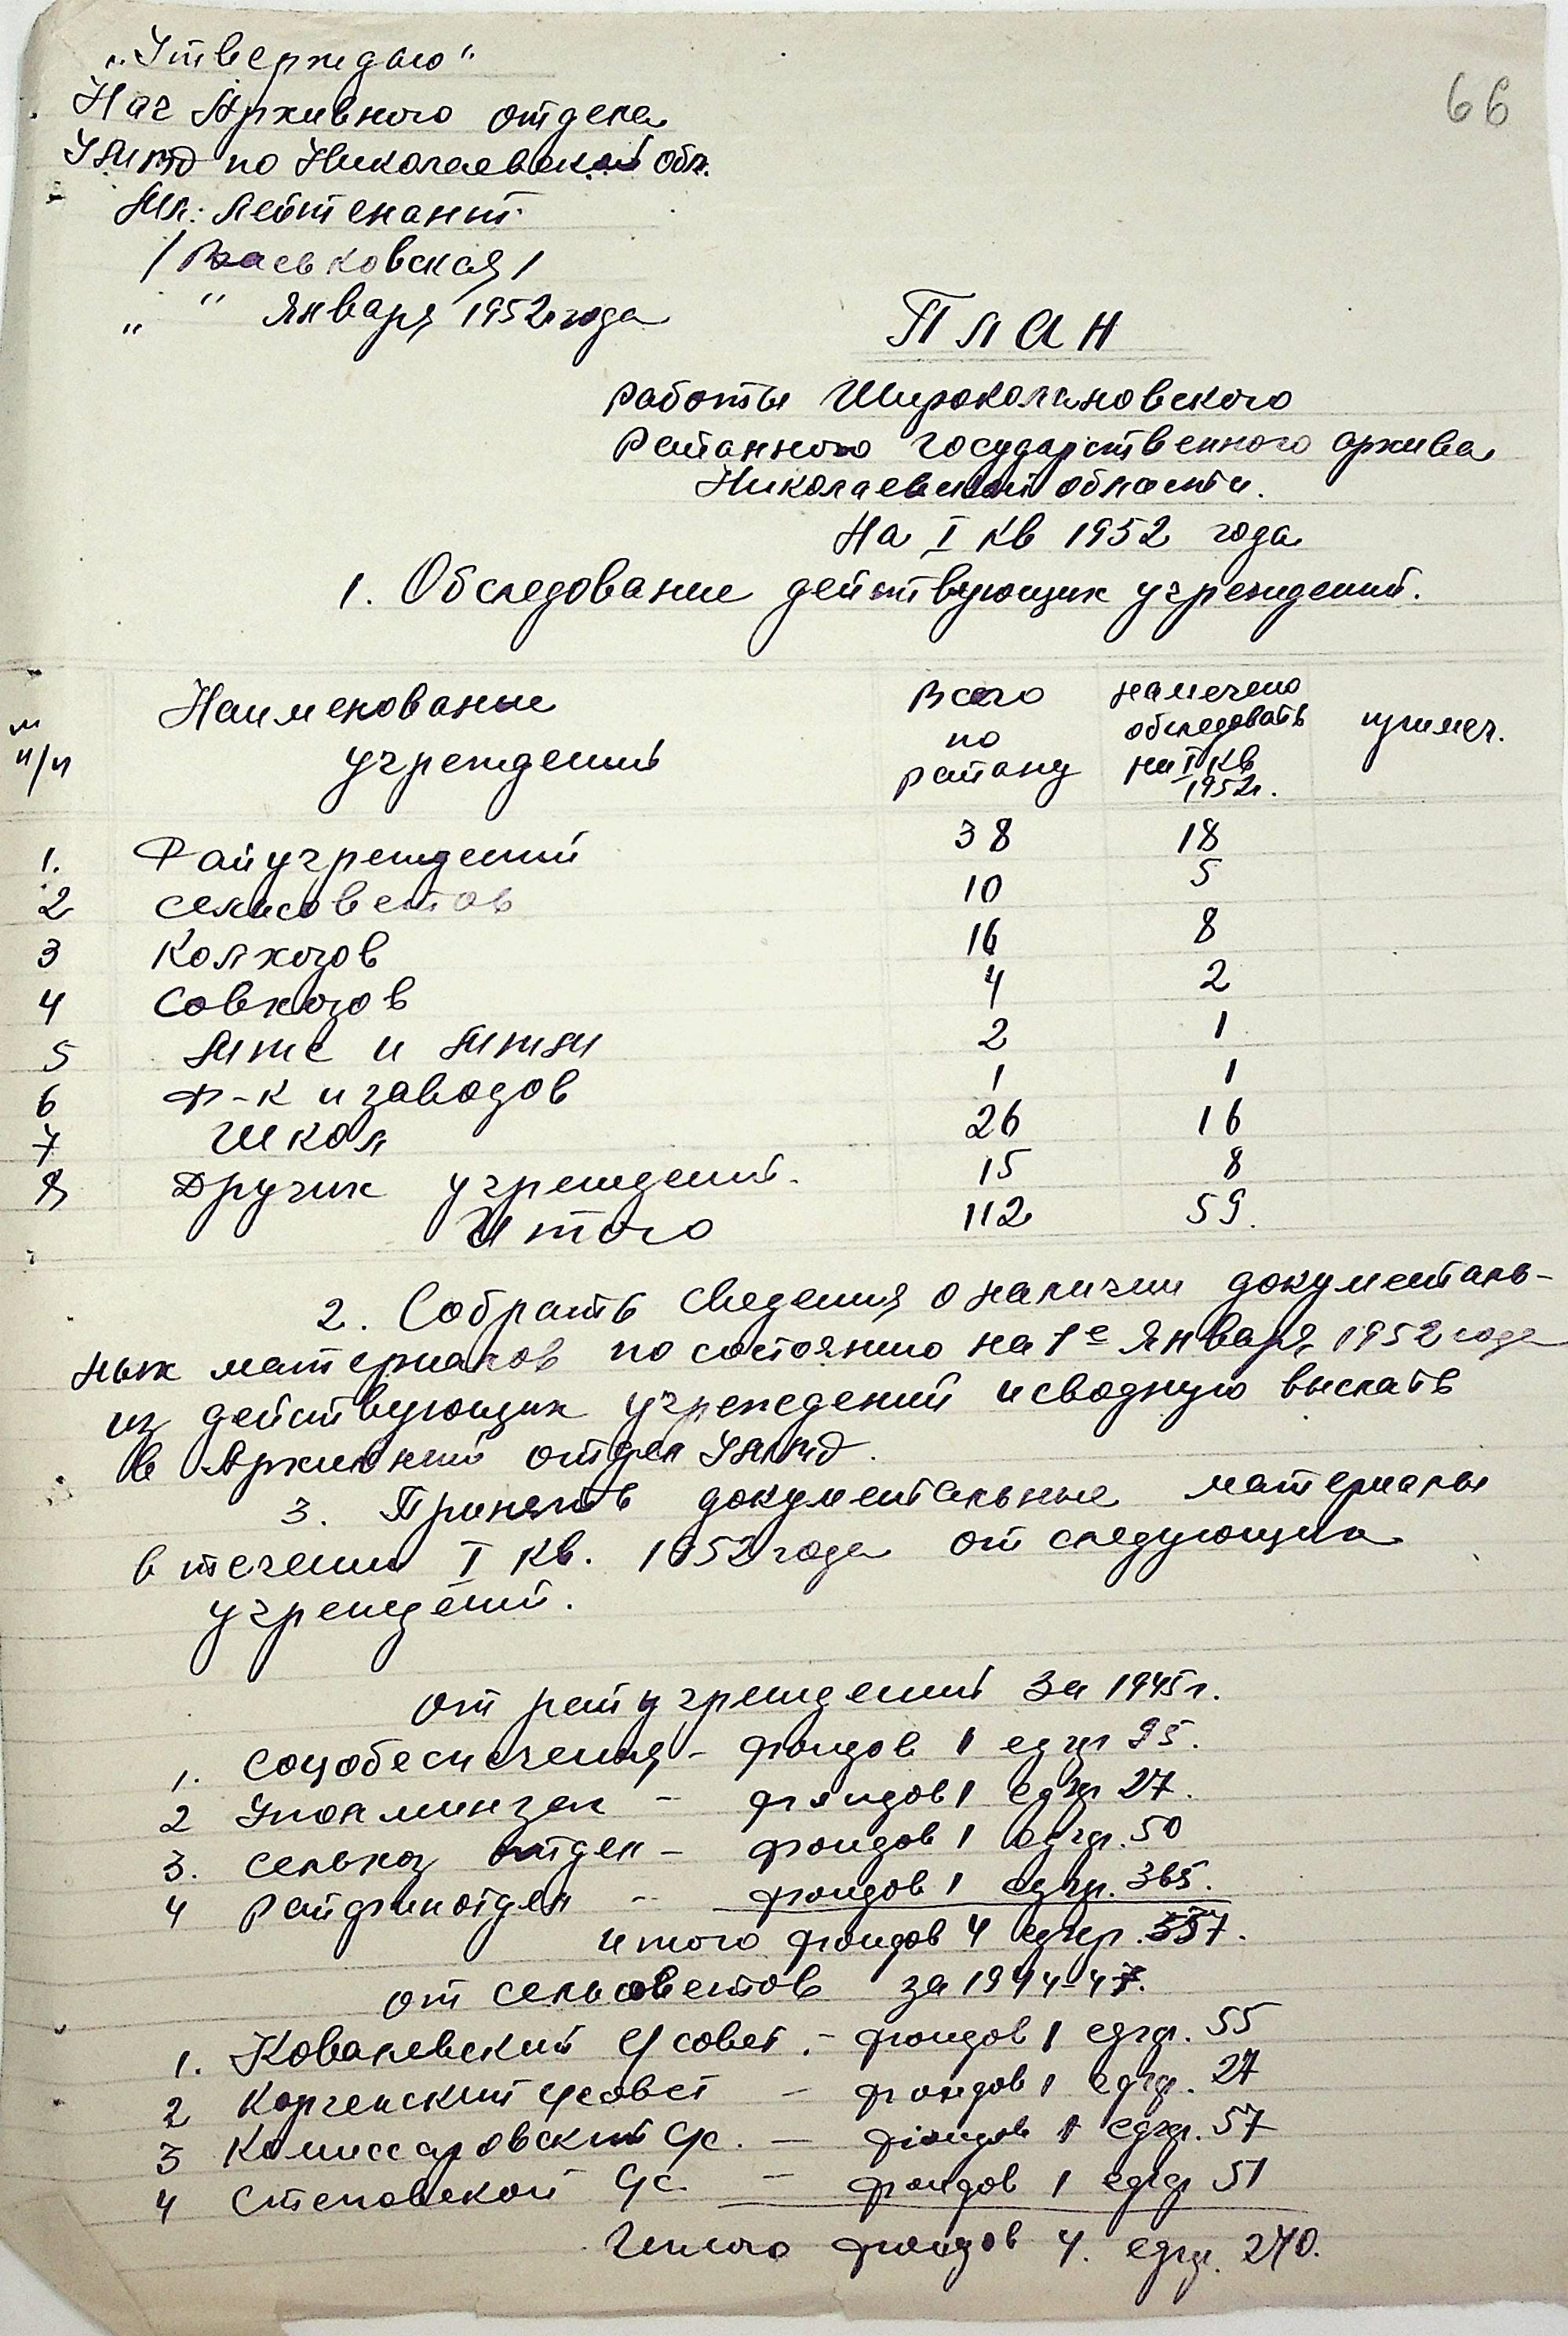 „Утверждаю"
66
Нач Архивного отдела
УМГБ по Николаевской обл.
Мл. лейтенант
/Васьковская/
„ " января 1952 года
План
работы Широколановского
Районного государственного архива
Николаевской области.
На I кв 1952 года
1. Обследование действующих учреждений.
№ п/п Наименование учреждений Всего по району намечено обследовать на I кв 1952г. примеч.
1. Райучреждений 38 18
2 сельсоветов 10 5
3 Колхозов 16 8
4 Совхозов 4 2
5 МТС и МТМ 2 1
6 Ф-к и заводов 1 1
7 Школ 26 16
8 Других учреждений. 15 8
Итого 112 59.
2. Собрать сведения о наличии документаль-
ных материалов по состоянию на 1е января 1952 года
из действующих учреждений и сводную выслать
в Архивный отдел
3. Принять документальные материалы
в течении I кв. 1952 года от следующих
учреждений.
от райучреждений за 1945г.
1. Соцобеспечения - фондов 1 едхр 95.
2 Уполминзаг - фондов 1 едхр 27.
3. сельхоз отдел - фондов 1 едхр. 50
4 Райфинотдел - фондов 1 едхр. 365.
итого фондов 4 едхр. 537.
от сельсоветов за 1944-47.
1. Ковалевский с/совет. - фондов 1 едхр. 55
2 Корченский с/совет - фондов 1 едхр. 27
3 Комиссаровский с/с. - фондов 1 едхр. 57
4 Степовской с/с. - фондов 1 едхр 51
Итого фондов 4. едхр. 240.